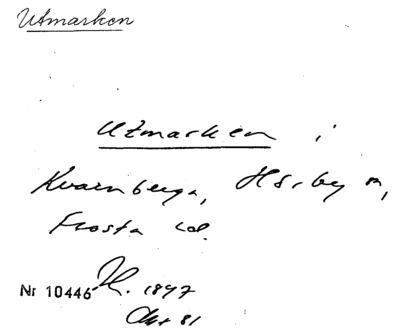 Utmarken
Utmarken i
Kvarnberga, Hörby sn,
Frosta hd.
Nr 10446 1897
Akt 81